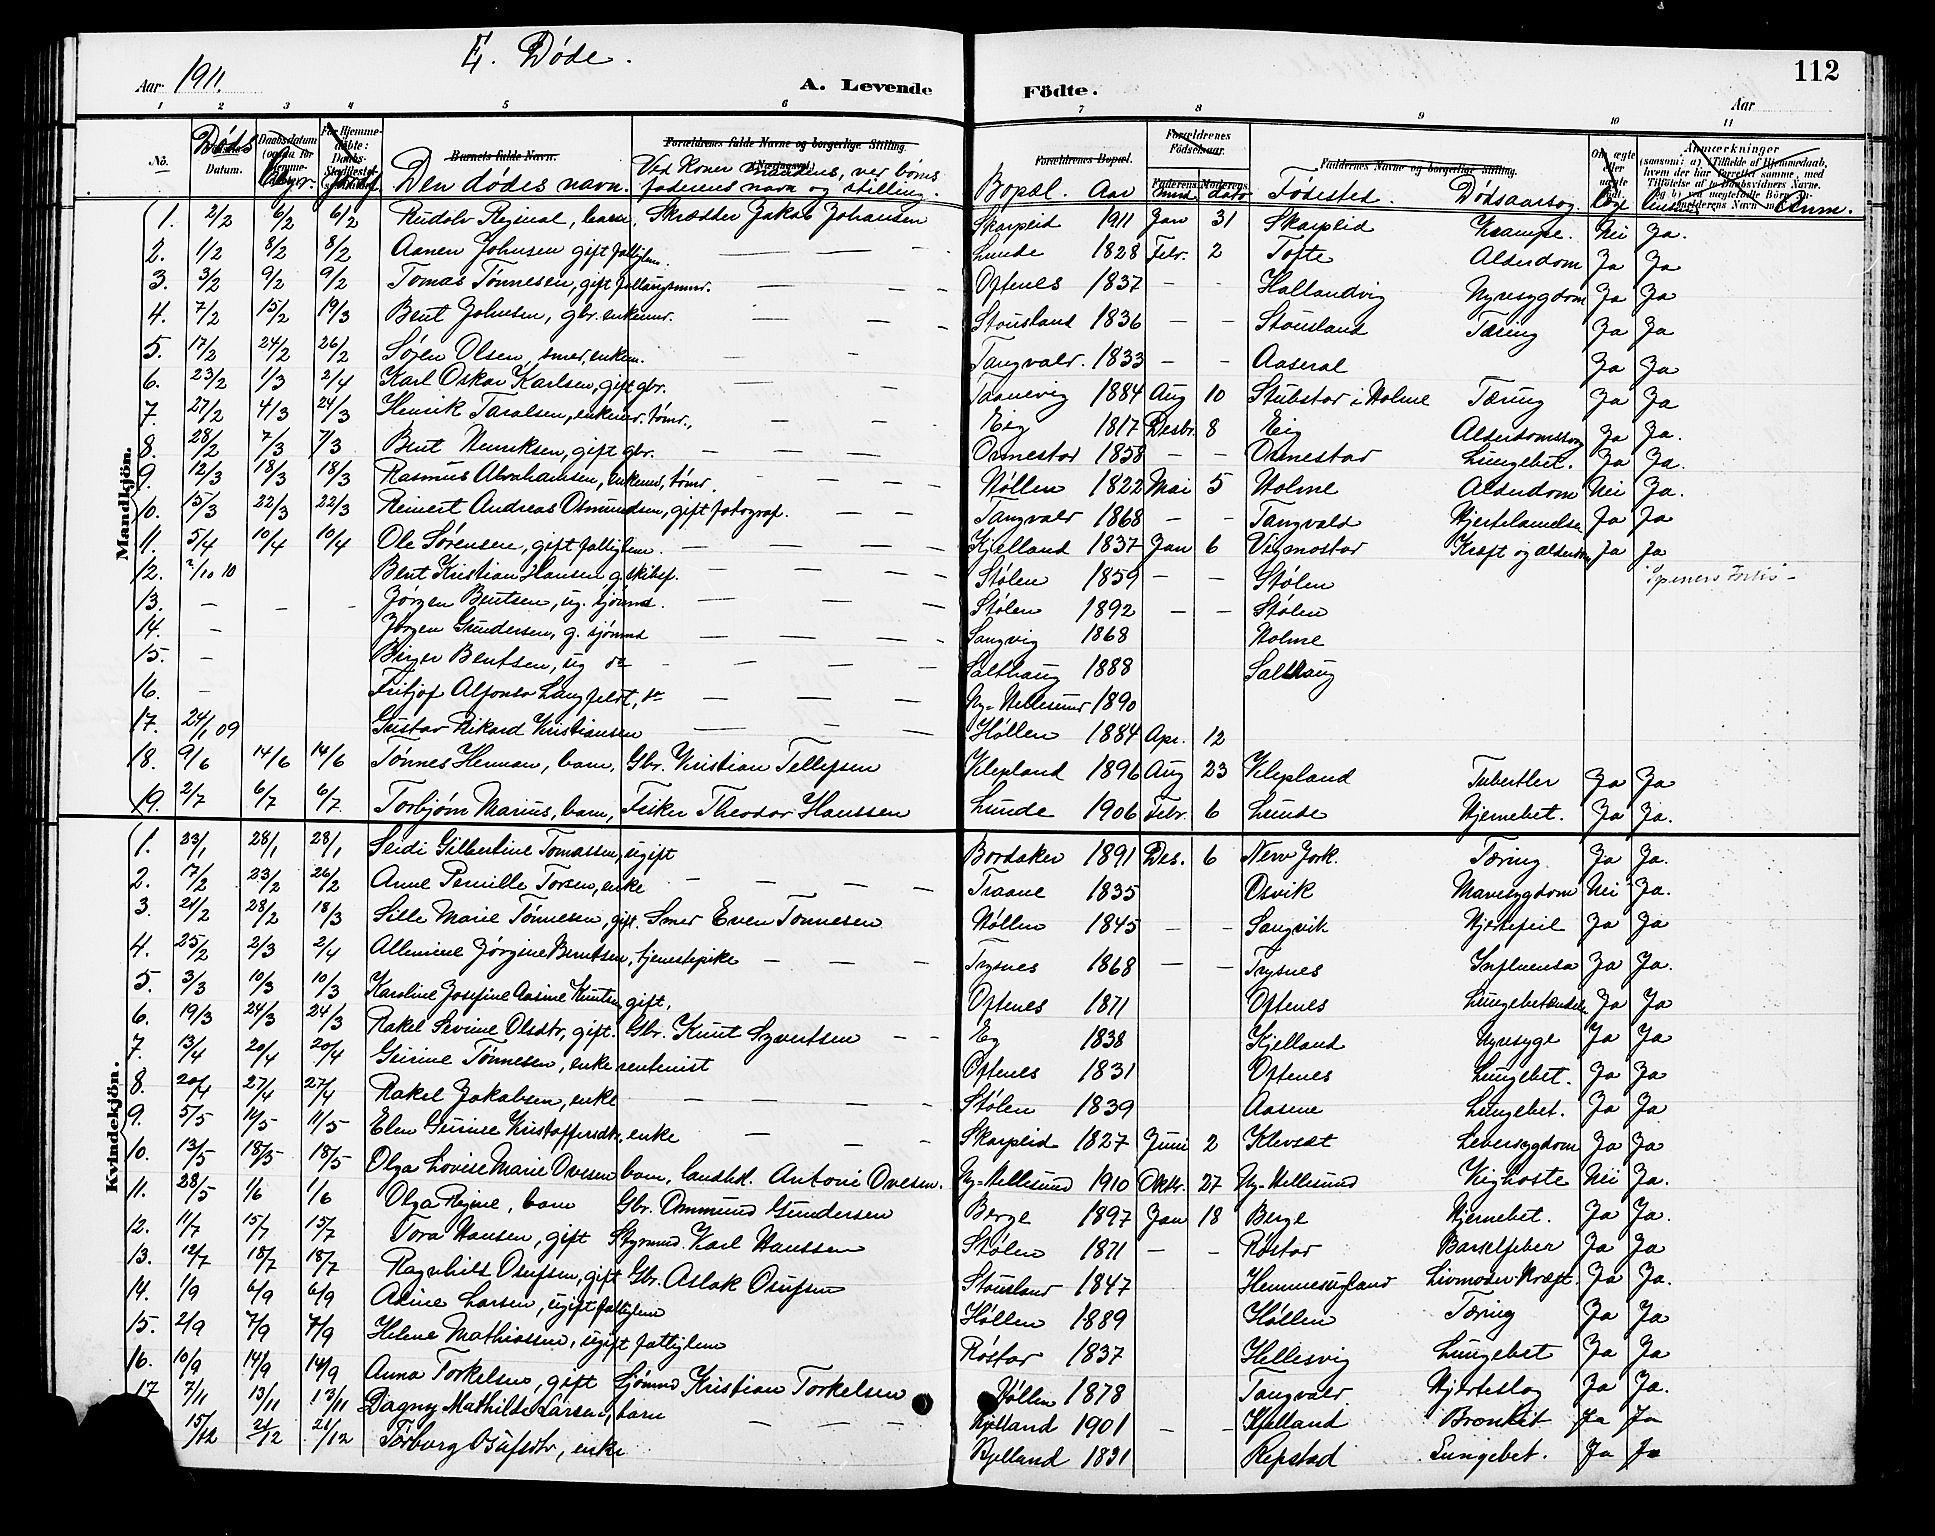 E. Døde.
Aar 1911.
A. Levende Födte.
112
Aar
1 2 3 4 5 6 7 8 9 10 11
No. Døds Datum. Den dødes navn. Ved Koner mandens, ved børns faderens navn og stilling. Bopæl. Aar Fødested. Dødsaarsag. Anm.
Barnets fulde Navn. Forældrenes fulde Navne og borgerlige Stilling. Forældrenes Bopæl. Forældrenes Fødselsaar. Faddernes Navne og borgerlige Stilling.
Mandkjön.
1. 2/2 6/2 6/2 Rudolv Reginal, barn, Skrædder Jakob Johansen Skarpleid 1911 Jan 31 Skarpleid Krampe. Nei Ja.
2. 1/2 8/2 8/2 Aanen Johnsen gift fattiglem. — — — Lunde 1828 Febr. 2 Tofte Alderdom Ja Ja
3. 3/2 9/2 9/2 Tomas Tønnesen, gift follaugsmnd. — — — Oftenes 1837 — — Hallandvig Nyresygdom Ja Ja
4. 7/2 15/2 19/3 Bent Johnsen, gbr. enkemd. — — — Stousland 1836 — — Stousland Tæring Ja Ja
5. 17/2 24/2 26/2 Søren Olsen, smed, enkem. — — — Tangvald. 1833 — — Aaseral Ja Ja
6. 23/2 1/3 2/4 Karl Oskar Karlsen, gift gbr. — — Taanevig 1884 Aug 10 Stubstad i Holme Tæring Ja Ja
7. 27/2 4/3 24/3 Henrik Taralsen, enkemd. tømr., — — — Eig 1817 Desbr. 8 Eig Alderdomssvag Ja Ja.
8. 28/2 7/3 7/3 Bent Henriksen, gift gbr. — — — — Ormestad 1858 — — Ormestad Lungebet. Ja Ja.
9. 12/3 18/3 18/3 Rasmus Abrahamsen, enkemd, tømr. — — — Høllen 1822 Mai 5 Holme Alderdom Nei Ja.
10. 15/3 22/3 22/3 Reinert Andreas Osmundsen, gift fotograf. — — Tangvald 1868 — — Tangvald Hjertelamelse Ja Ja
11. 5/4 10/4 10/4 Ole Sørensen, gift fattiglem. — — — — Kjelland 1837 Jan 6 Vigmostad Kræft og alderdom Ja Ja
12. 2/10 10 Bent Kristian Hansen g. skibsf. — — — Stølen 1859 — — Stølen
13. — — — Jørgen Bentsen, ug. sjømnd. — — — Stølen 1892 — — Stølen
14. — Jørgen Gundersen, g. sjømnd — — — Langvig 1868 Holme
15. — Birger Bentsen, ug do — — — — Salthaug 1888 Salthaug
16. — Fritjof Alfonso Langfeldt, do — — — Ny-Hellesund 1890
17. 24/1 09 Gustav Rikard Kristiansen — — — Høllen 1884 Apr. 12
18. 9/6 14/6 14/6 Tønnes Herman, barn, Gbr. Kristian Tellefsen Klepland 1896 Aug 23 Klepland Tubertler Ja Ja
19. 2/7 6/7 6/7 Torbjørn Marius, barn, Fisker Theodor Hanssen Lunde 1906 Febr. 6 Lunde Hjernebet. Ja Ja.
Kvindekjön.
1. 23/1 28/1 28/1 Seidi Gilbertine Tomassen, ugift Bordaker 1891 Des. 6 New Jork. Tæring Ja Ja.
2. 17/2 23/2 26/2 Anne Pernille Torsen, enke — — — — Traane 1835 Osvik Mavesygdom Nei Ja.
3. 21/2 28/2 18/3 Sille Marie Tønnesen, gift. Smed Even Tønnesen Høllen 1845 — — Langvik Hjertefeil Ja Ja
4. 25/2 2/3 2/4 Allemine Jørgine Berntsen, tjenestepike — — — Trysnes 1868 — — Trysnes Influensa Ja Ja.
5. 3/3 10/3 10/3 Karoline Josefine Aasine Knutsen gift, Oftenes 1871 Oftenes Lungebetændelse Ja Ja
6. 19/3 24/3 24/3 Rakel Sevine Olsdtr, gift. Gbr. Knut Syvertsen — — Eg 1838 Kjelland Nyresyge Ja Ja
7. 13/4 20/4 20/4 Gurine Tønnesen, enke rentenist Oftenes 1831 Oftenes Lungebet. Ja Ja
8. 20/4 27/4 27/4 Rakel Jakobsen, enke — — — — Stølen 1839 Aasne Lungebet. Ja Ja
9. 5/5 11/5 11/5 Elen Gurine Kristoffersdtr, enke — — — Skarpleid 1827 Juni 2 Klevset Leversygdom Ja Ja
10. 13/5 18/5 18/5 Olga Lovise Marie Ovesen barn, landhd. Antoni Ovesen. Ny-Hellesund 1910 Oktbr. 27 Ny-Hellesund Kighoste Nei Ja.
11. 28/5 1/6 1/6 Olga Regine, barn Gbr. Ommund Gundersen Berge 1897 Jan 18 Berge Hjernebet. Ja Ja.
12. 11/7 15/7 15/7 Tora Hansen, gift Styrmnd. Karl Hanssen Stølen 1871 — — Røstad Barselfeber Ja Ja
13. 12/7 18/7 18/7 Ragnhild Osufsen, gift Gbr. Aslak Osufsen Stousland 1847 Hemmesugland Livmoder-Kræft. Ja Ja.
14. 1/9 6/9 6/9 Adine Larsen, ugift fattiglem Høllen 1889 Høllen Tæring Ja Ja
15. 2/9 7/9 7/9 Helene Mathiassen, ugift fattiglem Røstad 1837 Hellesvig Lungebet Ja Ja
16. 10/9 14/9 14/9 Anna Torkelsen, gift Sjømnd Kristian Torkelsen Høllen 1878 Tangvald. Hjerteslag Ja Ja.
17 7/11 13/11 13/11 Dagny Mathilde Larsen, barn — — — Kjelland 1901 — — Kjelland Bronkit Ja Ja
15/12 21/12 21/12 Torborg Osufsdtr, enke Kjelland 1831 Repstad Lungebet. Ja Ja